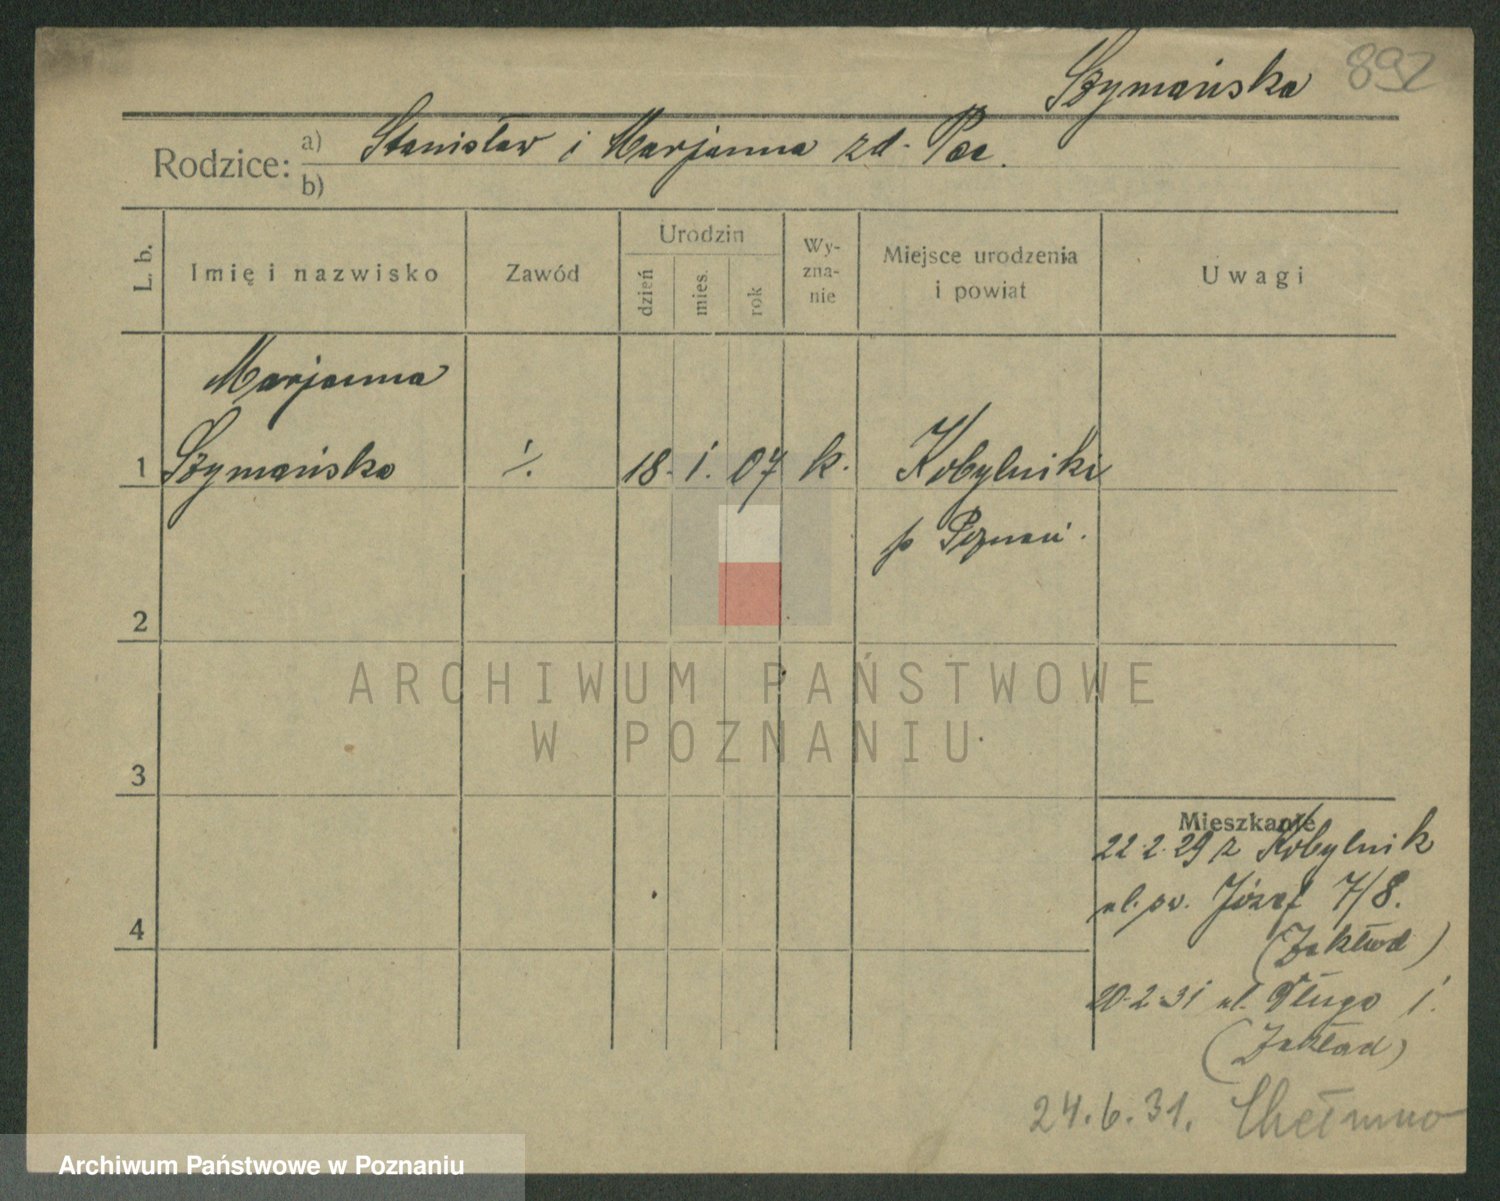 Szymańska 892
Rodzice: a) Stanisław i Marjanna zd. Pee.
b)
L. b.
Imię i nazwisko
Zawód
Urodzin
dzień
mies.
rok
Wy-
zna-
nie
Miejsce urodzenia
i powiat
Uwagi
Marjanna
1 Szymańska ./. 18. 1. 07 k. Kobylniki
p Poznań.
2
ARCHIWUM PAŃSTWOWE
W POZNANIU
3
Mieszkanie
22.2.29 z Kobylnik
ul. św. Józef 7/8.
4
(Zakład)
20.2.31 ul. Długa 1.
(Zakład)
24.6.31. Chełmno
Archiwum Państwowe w Poznaniu